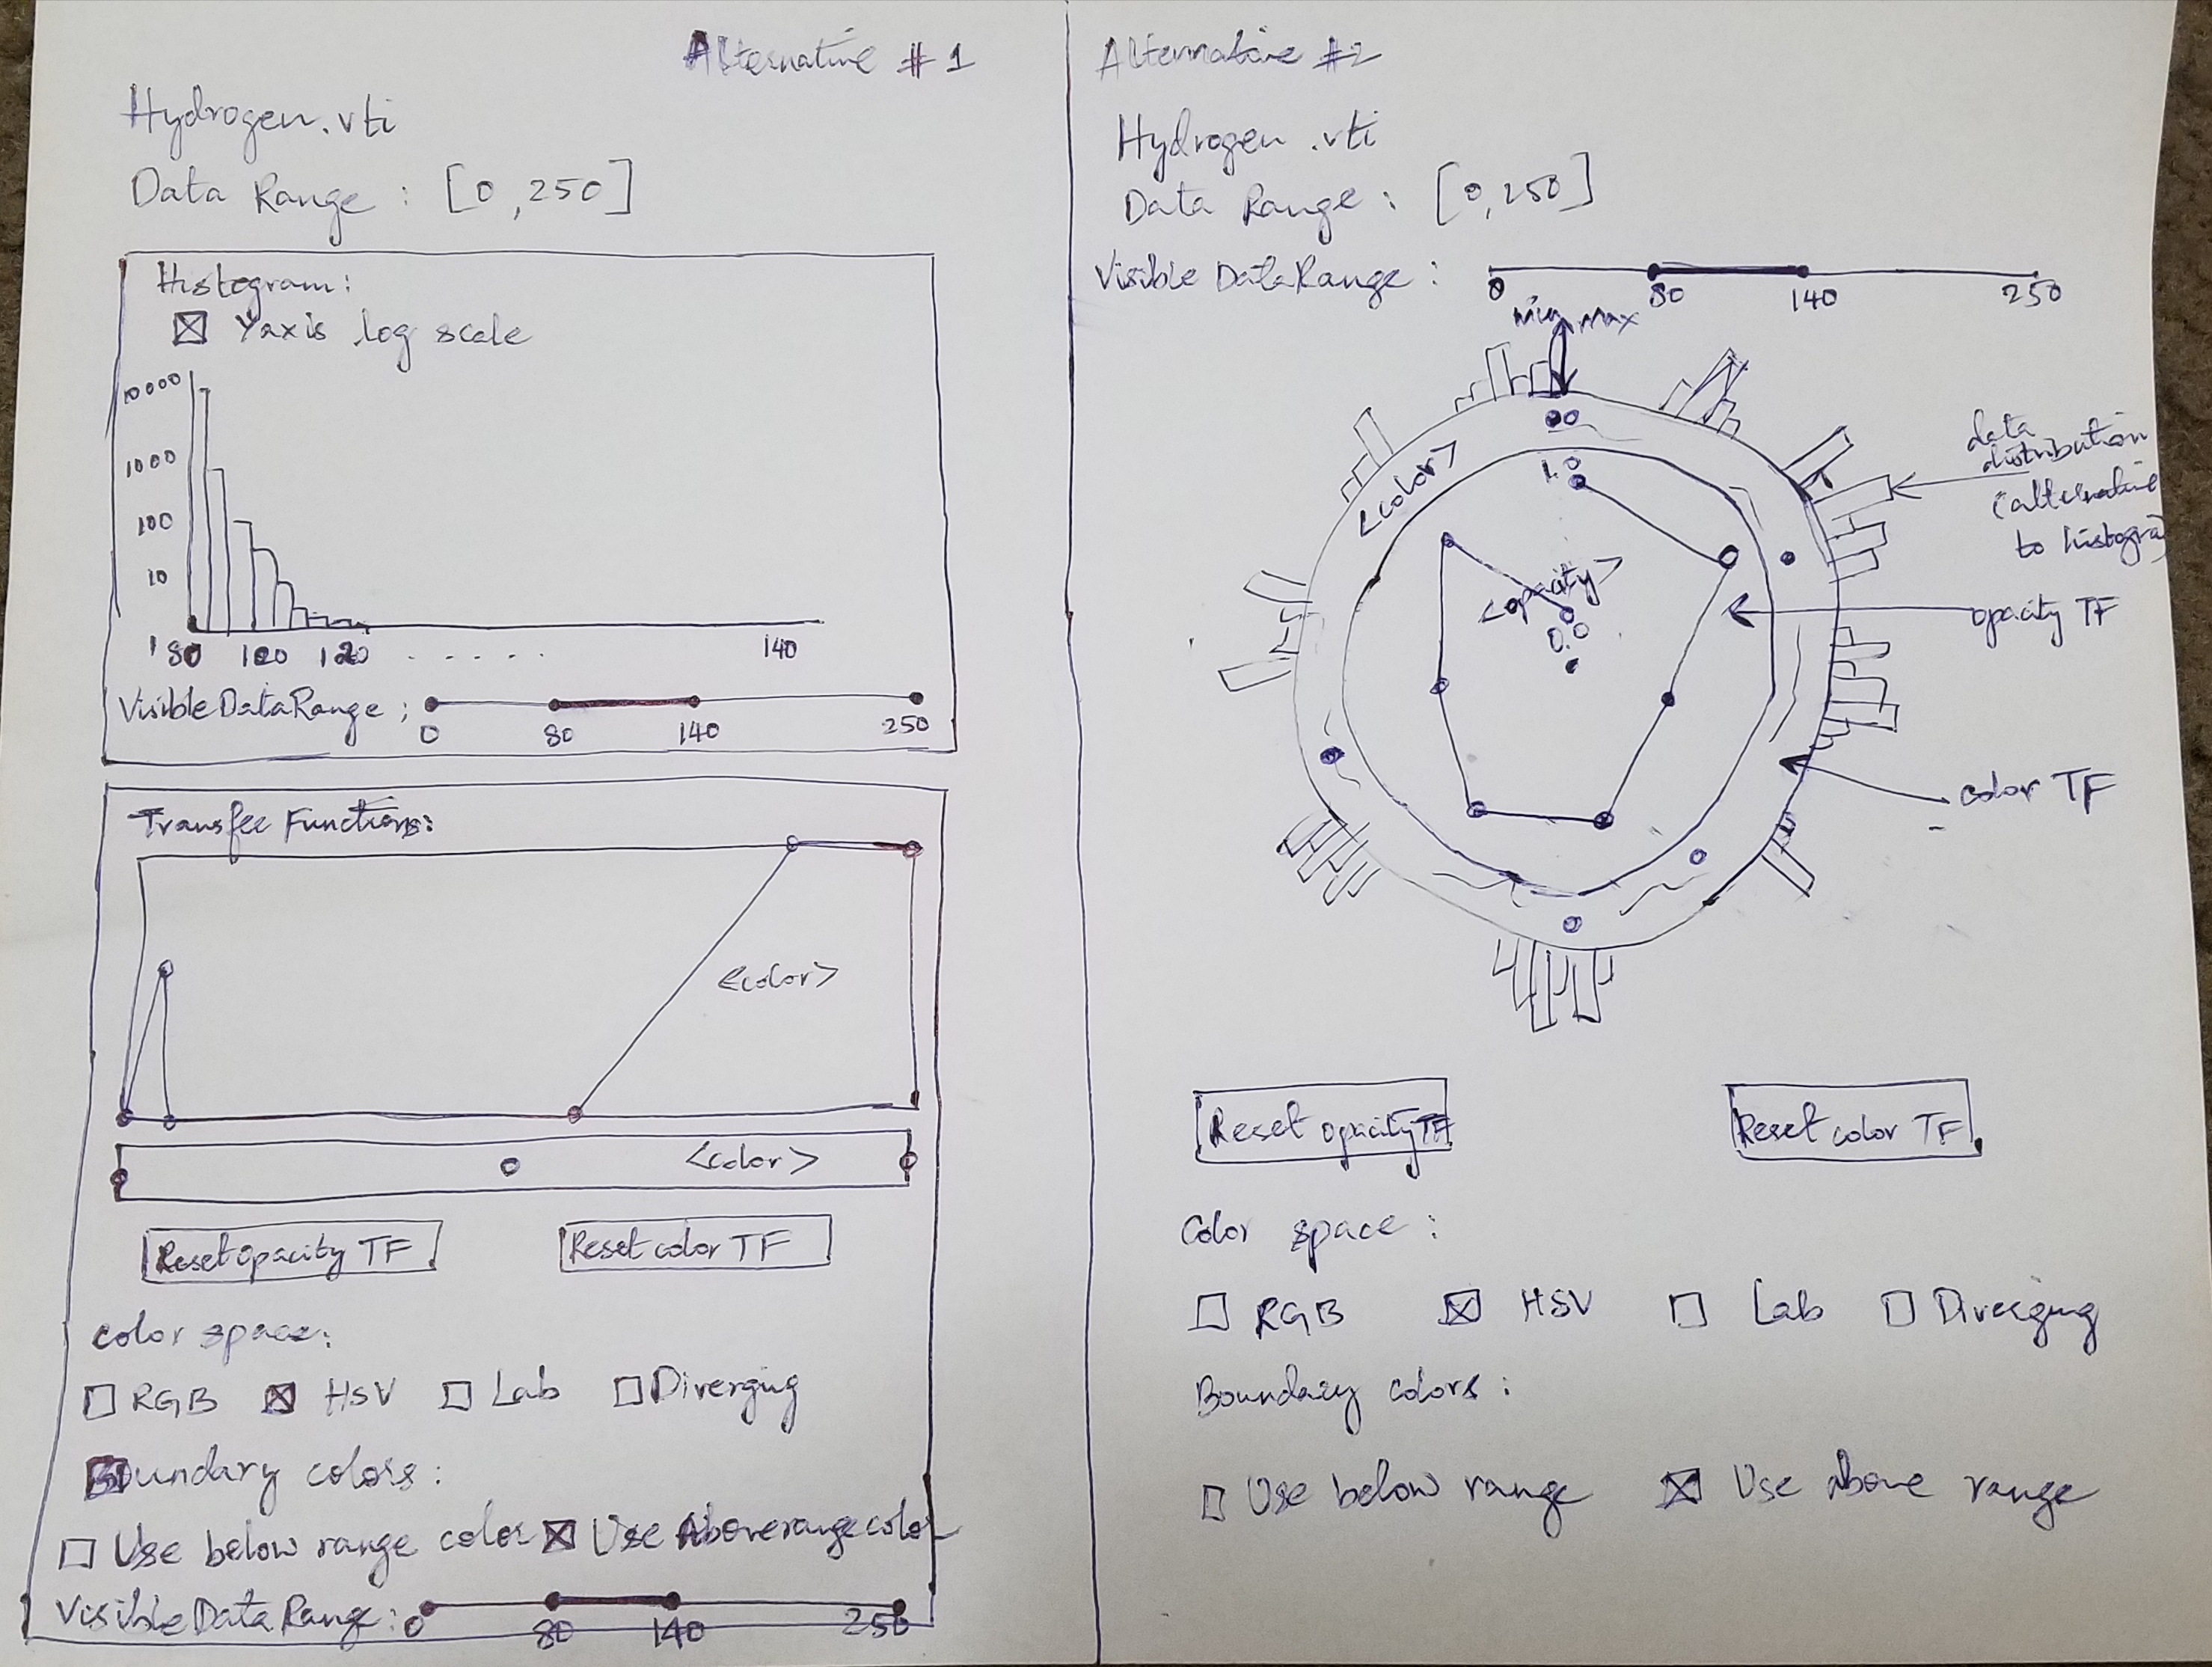 Alternative # 1
Hydrogen.vti
Data Range : [0,250]
Histogram:
Yaxis log scale
10000
1000
100
10
1
80 100 120 . . . . . 140
Visible DataRange ;
0 80 140 250
Transfer Functions:
<color>
<color>
Reset opacity TF
Reset color TF
color space:
RGB HSV Lab Diverging
Boundary colors:
Use below range color Use Above range color
Visible Data Range: 0 80 140 250
Alternative #2
Hydrogen .vti
Data Range : [0,250]
Visible DataRange :
0 80 140 250
min max
<color>
1.0
<opacity>
0.0
data
distribution
(alternative
to histogra
opacity TF
color TF
Reset opacity TF
Reset color TF
Color space :
RGB HSV Lab Diverging
Boundary colors :
Use below range Use above range